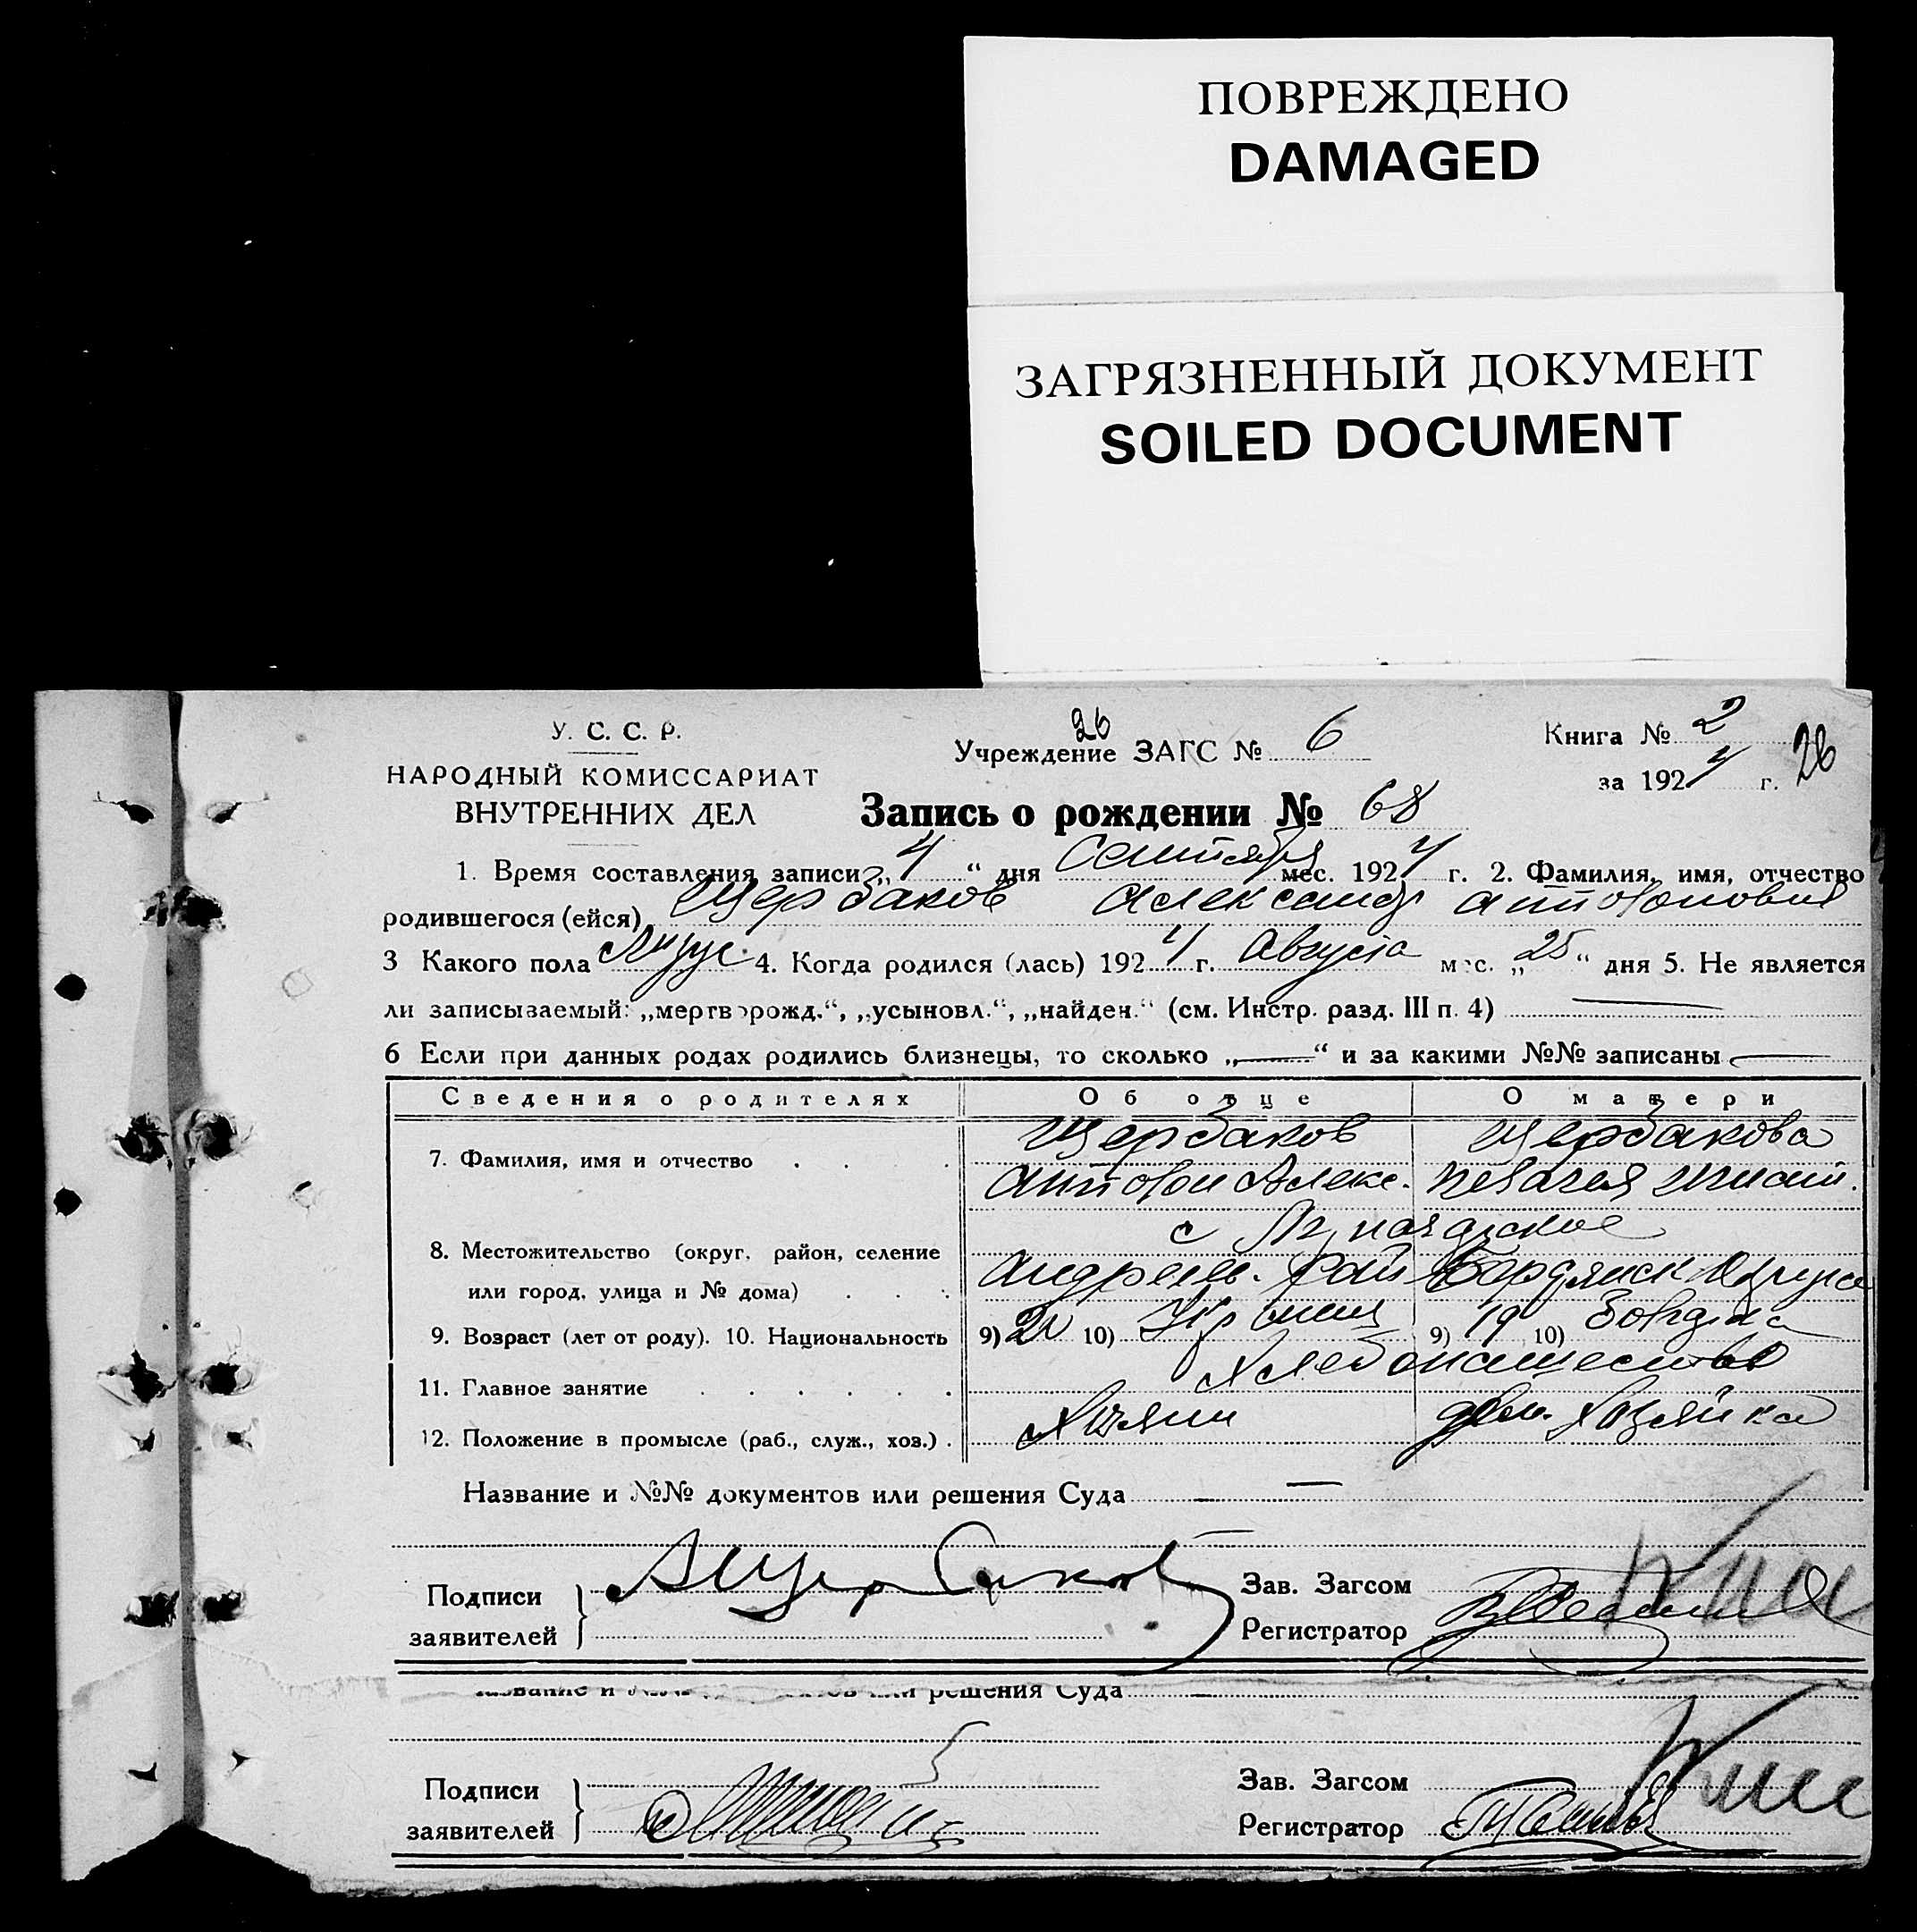 ПОВРЕЖДЕНО
DAMAGED
ЗАГРЯЗНЕННЫЙ ДОКУМЕНТ
SOILED DOCUMENT
У. С. С. Р.
НАРОДНЫЙ КОМИССАРИАТ
ВНУТРЕННИХ ДЕЛ
26
Учреждение ЗАГС № 6
Книга № 2
за 1924 г. 26
Запись о рождении № 68
1. Время составления записи „4“ дня Сентября мес. 1924 г. 2. Фамилия, имя, отчество
родившегося (ейся) Щербаков Александр Антонович
3 Какого пола Муж. 4. Когда родился (лась) 1924 г. Августа мес. „25“ дня 5. Не является
ли записываемый: „мертворожд.“, „усыновл.“, „найден.“ (см. Инстр. разд. III п. 4)
6 Если при данных родах родились близнецы, то сколько „—“ и за какими №№ записаны —
Сведения о родителях Об отце О матери
7. Фамилия, имя и отчество Щербаков Щербакова
Антон Алекс. Пелагея Игнат.
8. Местожительство (округ, район, селение с
или город, улица и № дома) Андреев. Рай Бердянск Округа
9. Возраст (лет от роду). 10. Национальность 9) 10) 9) 19 10)
11. Главное занятие Хлебопашество
12. Положение в промысле (раб., служ., хоз.) Хозяин дом. Хозяйка
Название и №№ документов или решения Суда —
Подписи
заявителей
АЩербаков
Зав. Загсом
Регистратор
решения Суда
Подписи
заявителей
Зав. Загсом
Регистратор